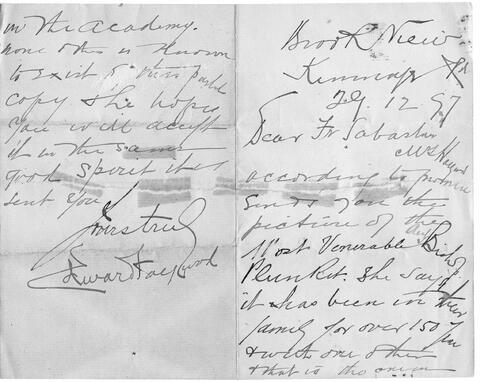 Brook View
Kimmage Rd
29.12.97
Dear Fr Sabastian
Mrs Haywood
according to promise
sends you the
picture of the
Most Venerable Bishop
Plunket. She says
it has been in their
family for over 150 yrs
& with one other
& that is the one
in the Academy.
none other is known
to exist of this
copy. She hopes
you will accept
it in the same
good spirit it is
sent you
Yours truly
Edward Haywood